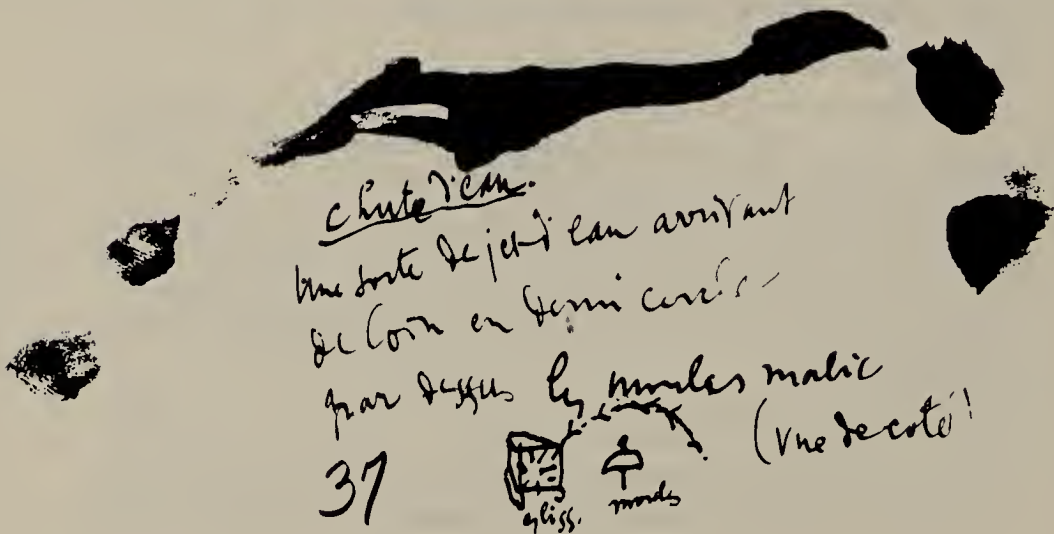 chute d'eau.
Une sorte de jet d'eau arrivant
de loin en demi cercle -
par dessus les moules malic
(vue de coté)
37
gliss. moules